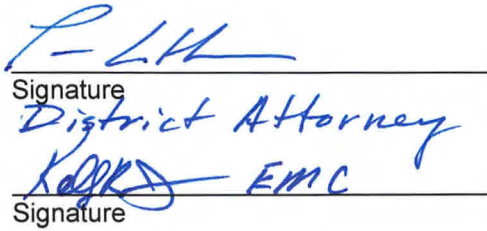 Signature
District Attorney
EMC
Signature